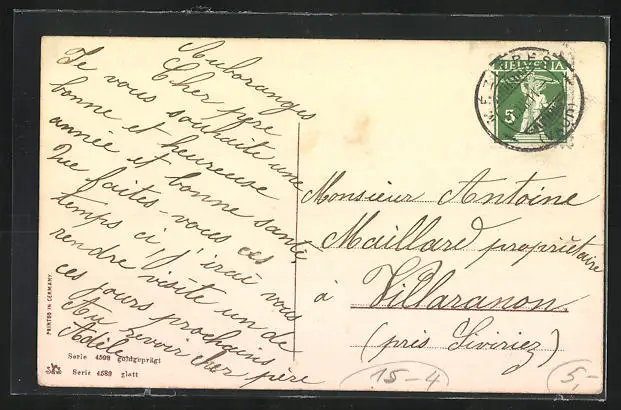 Auboranges
Cher père
Je vous souhaite une
bonne et heureuse
année et bonne santé,
Que faites-vous ces
temps ci, j'irai vous
rendre visite un de
ces jours prochains
Au revoir cher père
Adèle
HELVETIA
5
Monsieur Antoine
Maillard propriétaire
à Villaranon
(près Siviriez)
PRINTED IN GERMANY
Serie 4598 goldgeprägt
Serie 4589 glatt
15-4
5,-